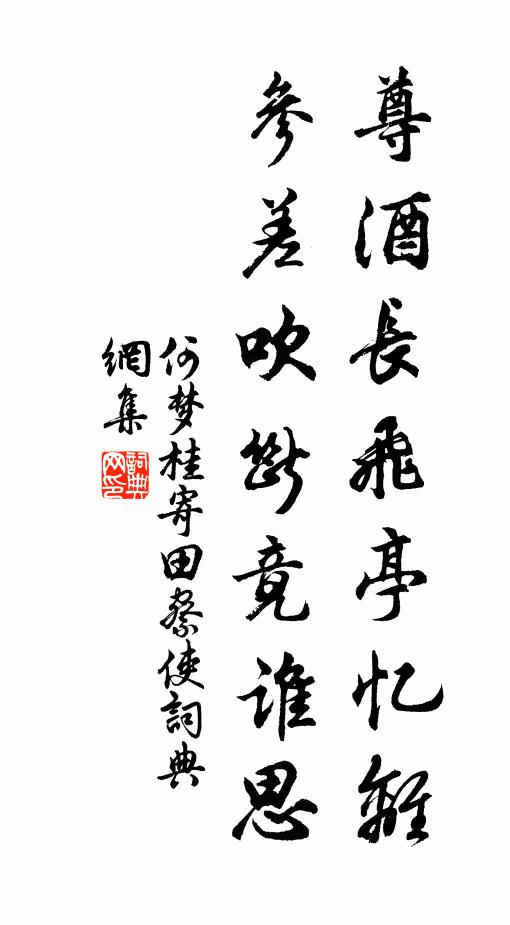 尊酒長飛亭忆離
參差吹斷竟谁思
何梦桂寄田察使詞典
網集
詞典
网